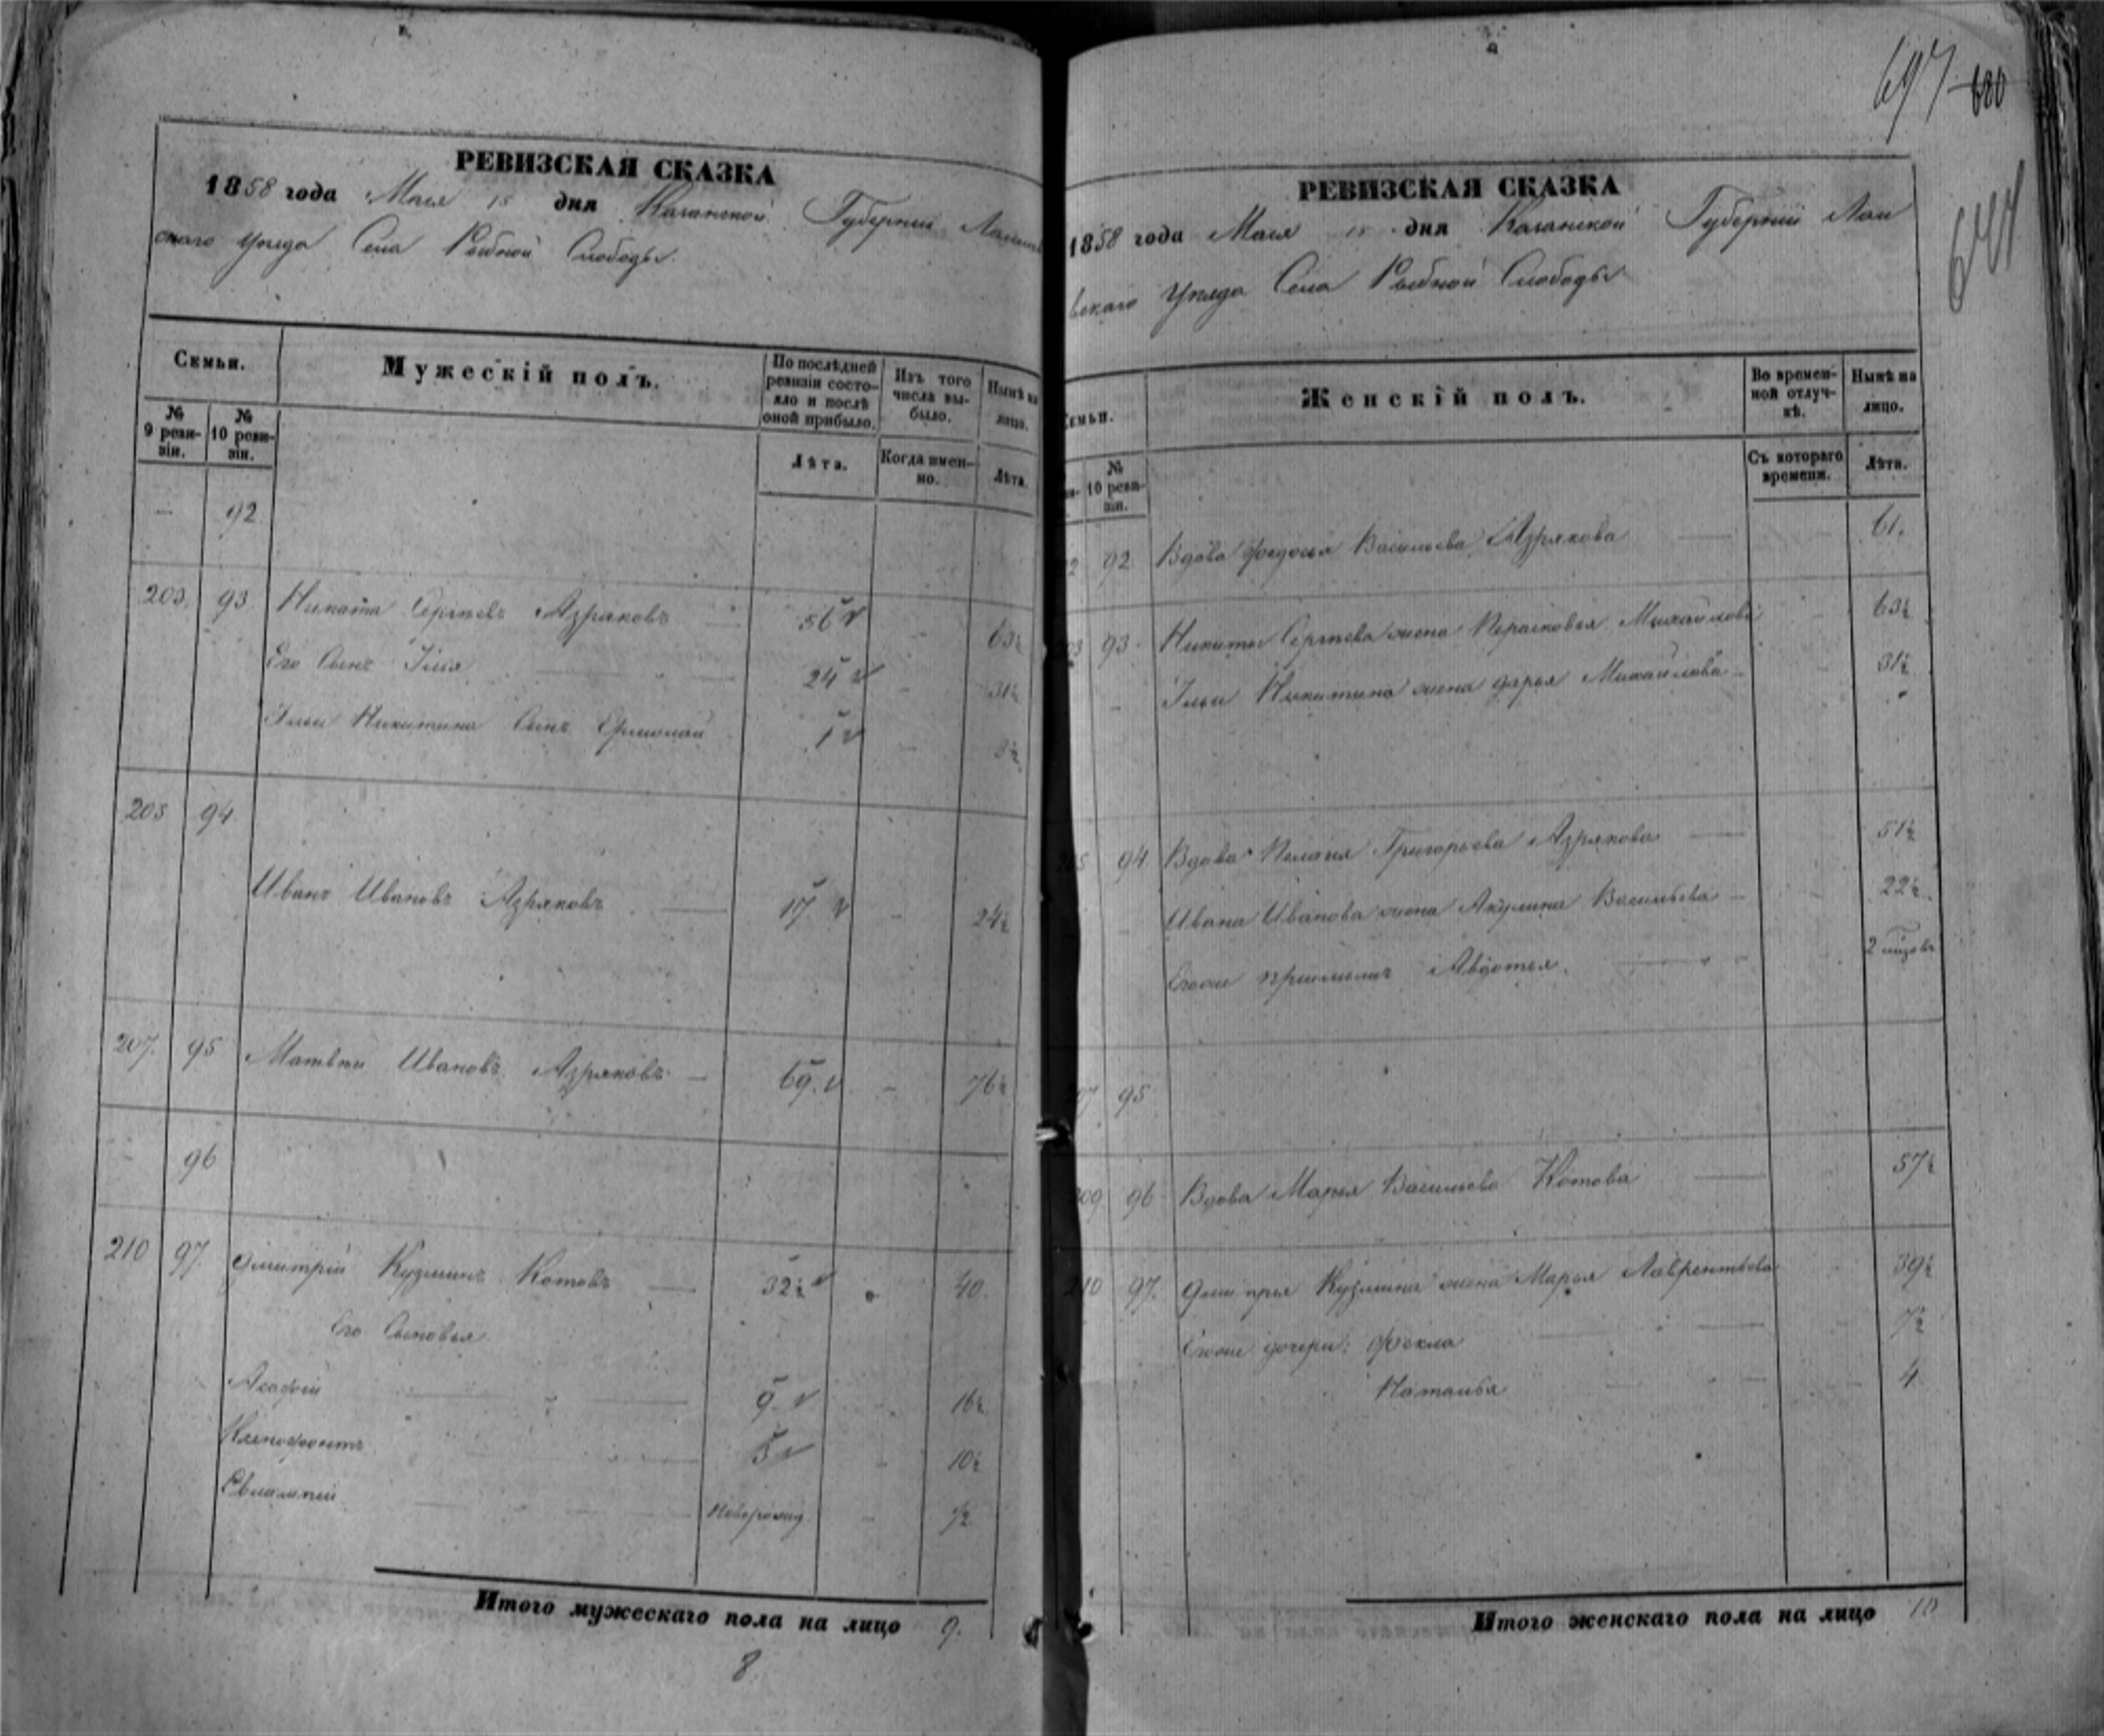 РЕВИЗСКАЯ СКАЗКА
1858 года Мая 15 дня Казанской Губерніи
скаго Уѣзда Села Рыбной Слободы.
Семьи.
Мужескій полъ.
По послѣдней ревизіи состояло и послѣ оной прибыло.
Изъ того числа выбыло.
Нынѣ на лицо.
№ 9 ревизіи.
№ 10 ревизіи.
Лѣта.
Когда именно.
Лѣта.
— 92
203. 93 Никита Сергѣевъ Азряковъ — 56 — 63½
Его Сынъ Илья — 24 — 31½
Ильи Никитина Сынъ Ермолай 1 — 8½
205 94
Иванъ Ивановъ Азряковъ — 17 — 24½
207. 95 Матвѣй Ивановъ Азряковъ — 69. — 76½
— 96
210 97. Дмитрій Кузминъ Котовъ — 32½ 40.
Его Сыновья
Асафей — 9 16½
Ксенофонтъ 3 — 10½
Евлампій новорожд. — ½
Итого мужескаго пола на лицо 9.
8.
697 680
641
РЕВИЗСКАЯ СКАЗКА
1858 года Мая 15 дня Казанской Губерніи Лаи
скаго Уѣзда Села Рыбной Слободы
Семьи.
Женскій полъ.
Во временной отлучкѣ.
Нынѣ на лицо.
№ 10 ревизіи.
Съ котораго времени.
Лѣта.
92 Вдова Федосья Васильева Азрякова — 61.
93 Никиты Сергѣева жена Парасковья Михайлова 63½
Ильи Никитина жена Дарья Михайлова — 31½
94 Вдова Пелагия Григорьева Азрякова — 51½
Ивана Иванова жена Акулина Васильева — 22½
Авдотья. 2
95
209 96 Вдова Марья Васильева Котова — 57½
210 97. Дмитрья Кузмина жена Марья Лаврентьева 39½
Егоже дочери: Фекла — 7½
Наталья — 4
Итого женскаго пола на лицо 10